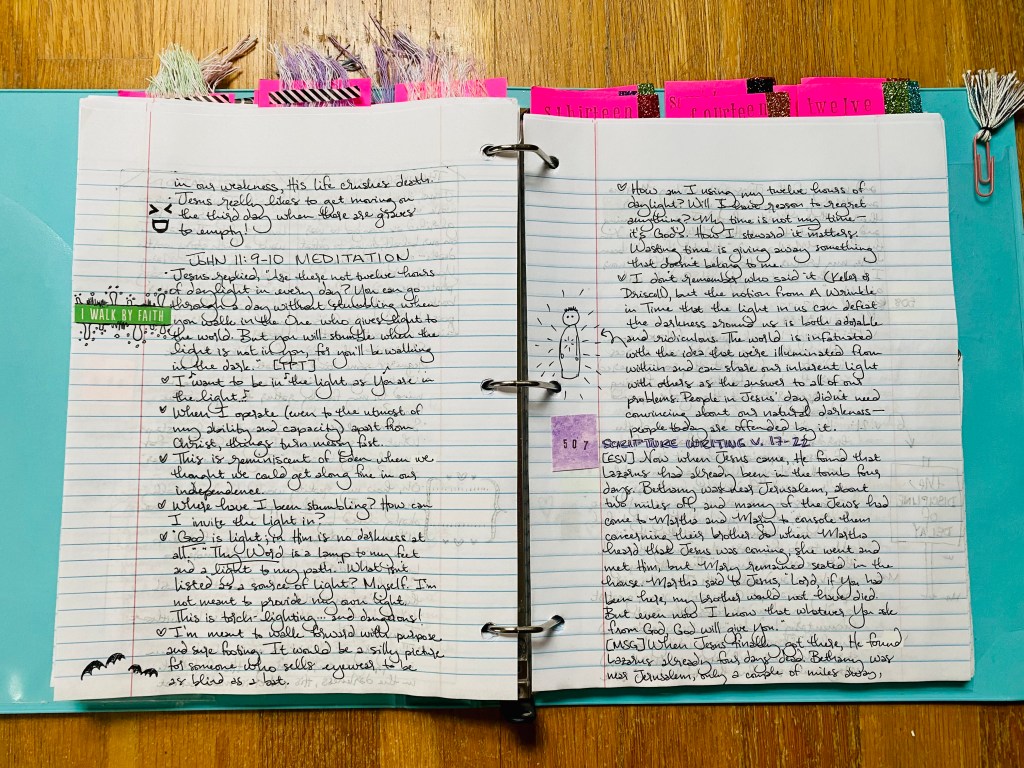 sthirteen
fourteen
twelve
in our weakness, His life crushes death.
Jesus really likes to get moving on
the third day when there are graves
to empty!
JOHN 11:9-10 MEDITATION
"Jesus replied, "Are there not twelve hours
of daylight in every day? You can go
through a day without stumbling when
you walk in the One who gives light to
the world. But you will stumble when the
light is not in you, for you'll be walking
in the dark." [TPT]
I WALK BY FAITH
♡ I want to be in the light as You are in
the light.
♡ When I operate (even to the utmost of
my ability and capacity) apart from
Christ, things turn messy fast.
♡ This is reminiscent of Eden when we
thought we could get along fine in our
independence.
♡ Where have I been stumbling? How can
I invite the light in?
♡ "God is light; in Him is no darkness at
all." "Thy Word is a lamp to my feet
and a light to my path." What isn't
listed as a source of light? Myself. I'm
not meant to provide my own light.
This is torch-lighting, and dangerous!
♡ I'm meant to walk forward with purpose
and sure footing. It would be a silly picture
for someone who sells eyewear to be
as blind as a bat.
♡ How am I using my twelve hours of
daylight? Will I have reason to regret
anything? My time is not my time—
it's God's. How I steward it matters.
Wasting time is giving away something
that doesn't belong to me.
♡ I don't remember who said it (Keller or
Driscoll), but the notion from A Wrinkle
in Time that the light in us can defeat
the darkness around us is both adorable
and ridiculous. The world is infatuated
with the idea that we're illuminated from
within and can share our inherent light
with others as the answer to all of our
problems. People in Jesus' day didn't need
convincing about our natural darkness—
people today are offended by it.
507
SCRIPTURE WRITING v. 17-22
[ESV] Now when Jesus came, He found that
Lazarus had already been in the tomb four
days. Bethany was near Jerusalem, about
two miles off, and many of the Jews had
come to Martha and Mary to console them
concerning their brother. So when Martha
heard that Jesus was coming, she went and
met Him, but Mary remained seated in the
house. Martha said to Jesus, "Lord, if You had
been here, my brother would not have died.
But even now I know that whatever You ask
from God, God will give You."
[MSG] When Jesus finally got there, He found
Lazarus already four days dead. Bethany was
near Jerusalem, only a couple of miles away,